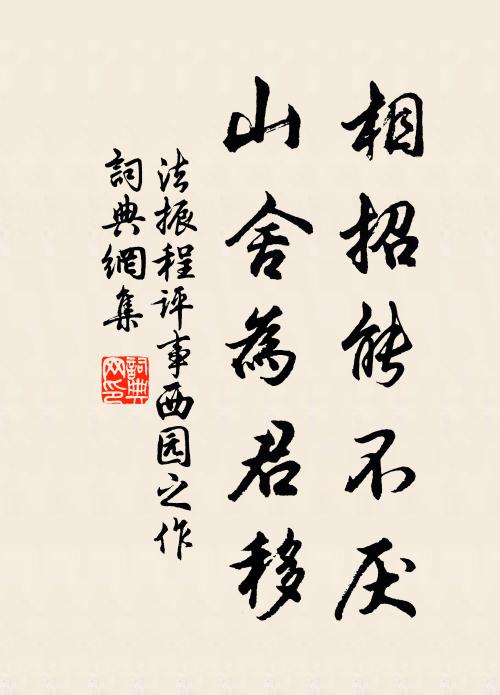 相招能不厌
山舍為君移
法振程评事西园之作
詞典網集
詞典網印